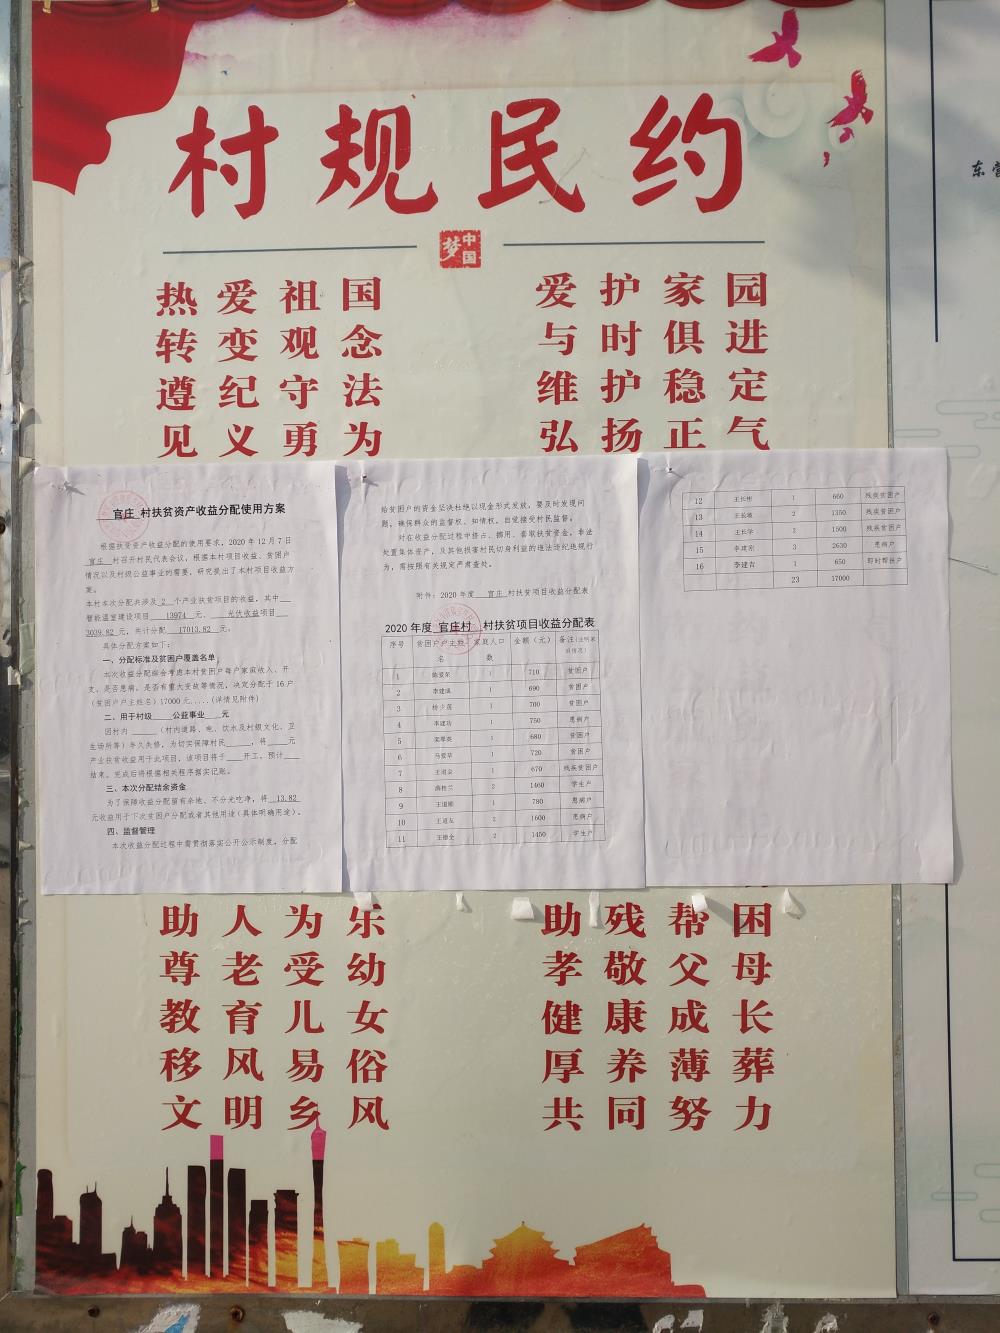 村规民约
中国梦
热爱祖国
爱护家园
转变观念
与时俱进
遵纪守法
维护稳定
见义勇为
弘扬正气
官庄 村扶贫资产收益分配使用方案
根据扶贫资产收益分配的使用要求，2020年12月7日
官庄 村召开村民代表会议，根据本村项目收益、贫困户
情况以及村级公益事业的需要，研究提出了本村项目收益方
案。
本村本次分配共涉及 2 个产业扶贫项目的收益，其中
智能温室建设项目 13974 元、 光伏收益项目
3039.82 元，共计分配 17013.82 元。
具体分配方案如下：
一、分配标准及贫困户覆盖名单
本次收益分配综合考虑本村贫困户每户家庭收入、开
支、是否患病、是否有重大变故等情况，决定分配于16户
（贫困户户主姓名）17000元.....(详情见附件)
二、用于村级 公益事业 元
因村内 （村内道路、电、饮水及村级文化、卫
生场所等）年久失修，为切实保障村民 ，将 元
产业扶贫收益用于此项目，该项目将于 开工，预计
结束。完成后将根据相关程序据实记账。
三、本次分配结余资金
为了保障收益分配留有余地、不分光吃净，将 13.82
元收益用于下次贫困户分配或者其他用途（具体明确用途）。
四、监督管理
本次收益分配过程中需贯彻落实公开公示制度，分配
给贫困户的资金坚决杜绝以现金形式发放，要及时发现问
题，确保群众的监督权、知情权，自觉接受村民监督。
对在收益分配过程中挤占、挪用、套取扶贫资金，非法
处置集体资产，及其他损害村民切身利益的违法违纪违规行
为，需按照有关规定严肃查处。
附件：2020年度 官庄 村扶贫项目收益分配表
2020年度 官庄村 村扶贫项目收益分配表
序号 贫困户户主姓名 家庭人口数 金额（元） 备注
1 1 710 贫困户
2 李建成 1 690 贫困户
3 1 700 贫困户
4 李建功 1 750 患病户
5 1 680 贫困户
6 马爱草 1 720 贫困户
7 1 670 残疾贫困户
8 2 1460 学生户
9 王道顺 1 780 患病户
10 王道友 2 1600 患病户
11 王德全 2 1450 学生户
12 王长彬 1 660 残疾贫困户
13 王长坡 2 1350 残疾贫困户
14 王长学 2 1500 残疾贫困户
15 李建刚 3 2630 患病户
16 李建吉 1 650 即时帮扶户
23 17000
助人为乐
助残帮困
尊老爱幼
孝敬父母
教育儿女
健康成长
移风易俗
厚养薄葬
文明乡风
共同努力
东营